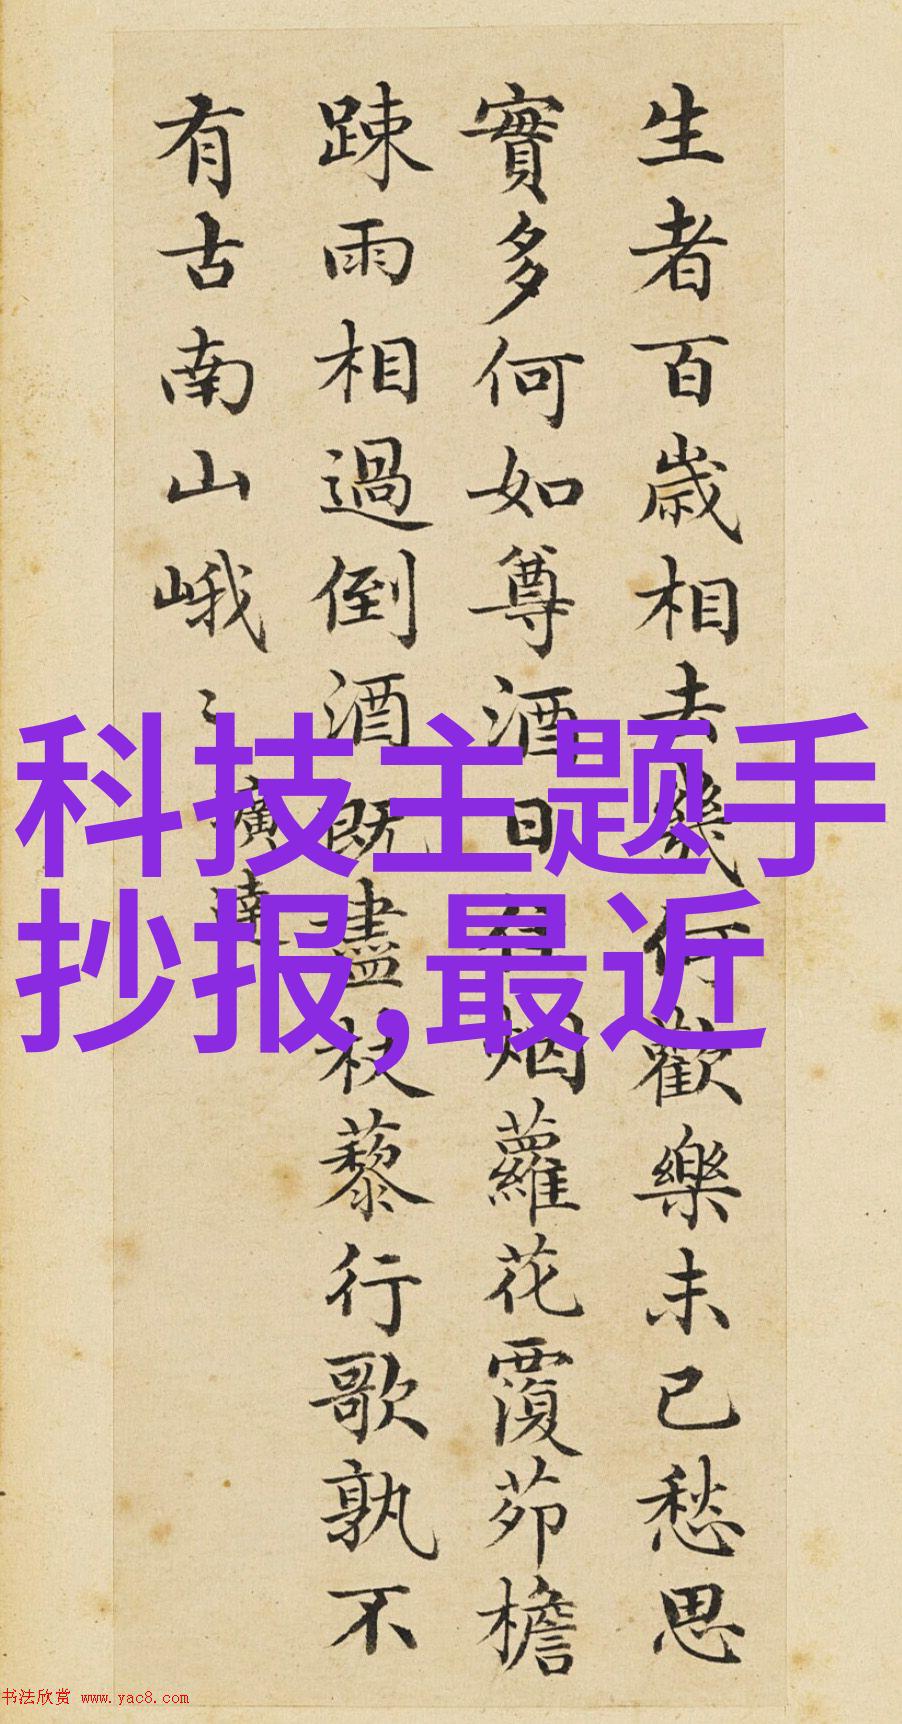 生者百歳相去幾何歡樂未已愁思
實多何如尊酒日往烟蘿花覆茆檐
踈雨相過倒酒既盡杖藜行歌孰不
有古南山峨〻 曠達
科技主题手
抄报,最近
书法欣赏 www.yac8.com